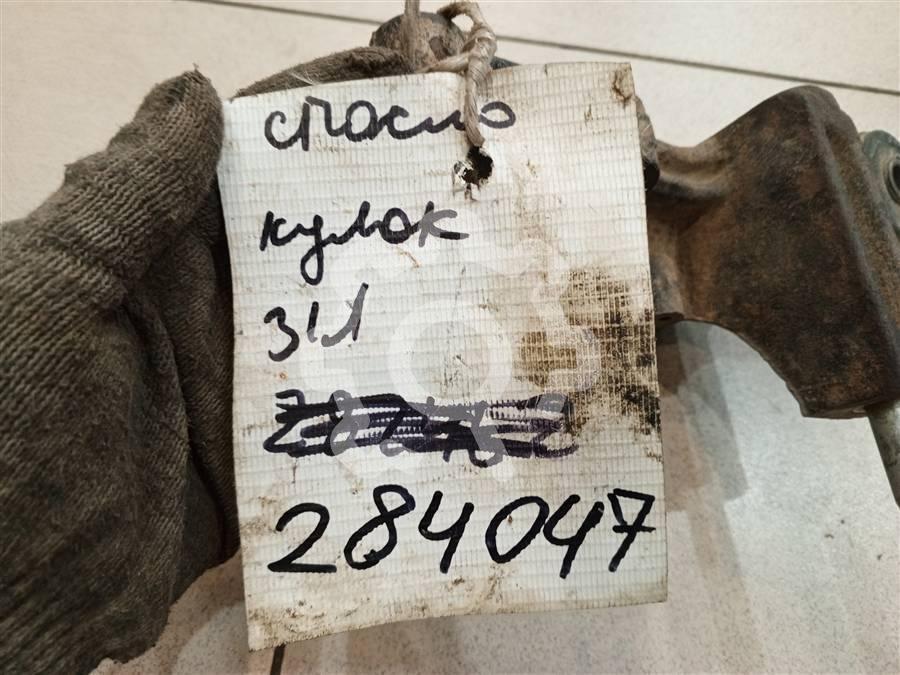 спасио
кулак
З/Л
284047